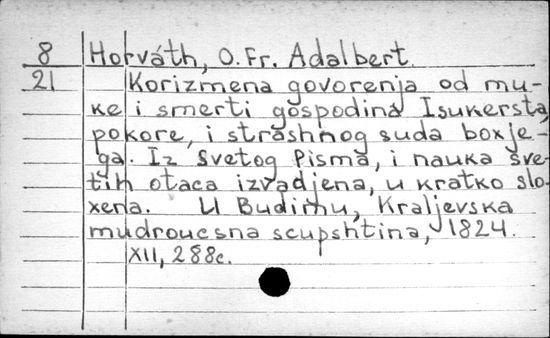 8 Horváth, O. Fr. Adalbert.
21 Korizmena govorenja od mu-
ke i smerti gospodina Isukersta,
pokore, i strashnog suda boxje-
ga. Iz svetog Pisma, i nauka sve-
tih otaca izvadjena, u kratko slo-
xena. U Budimu, Kraljevska
mudroucsna scupshtina, 1824.
XII, 288c.